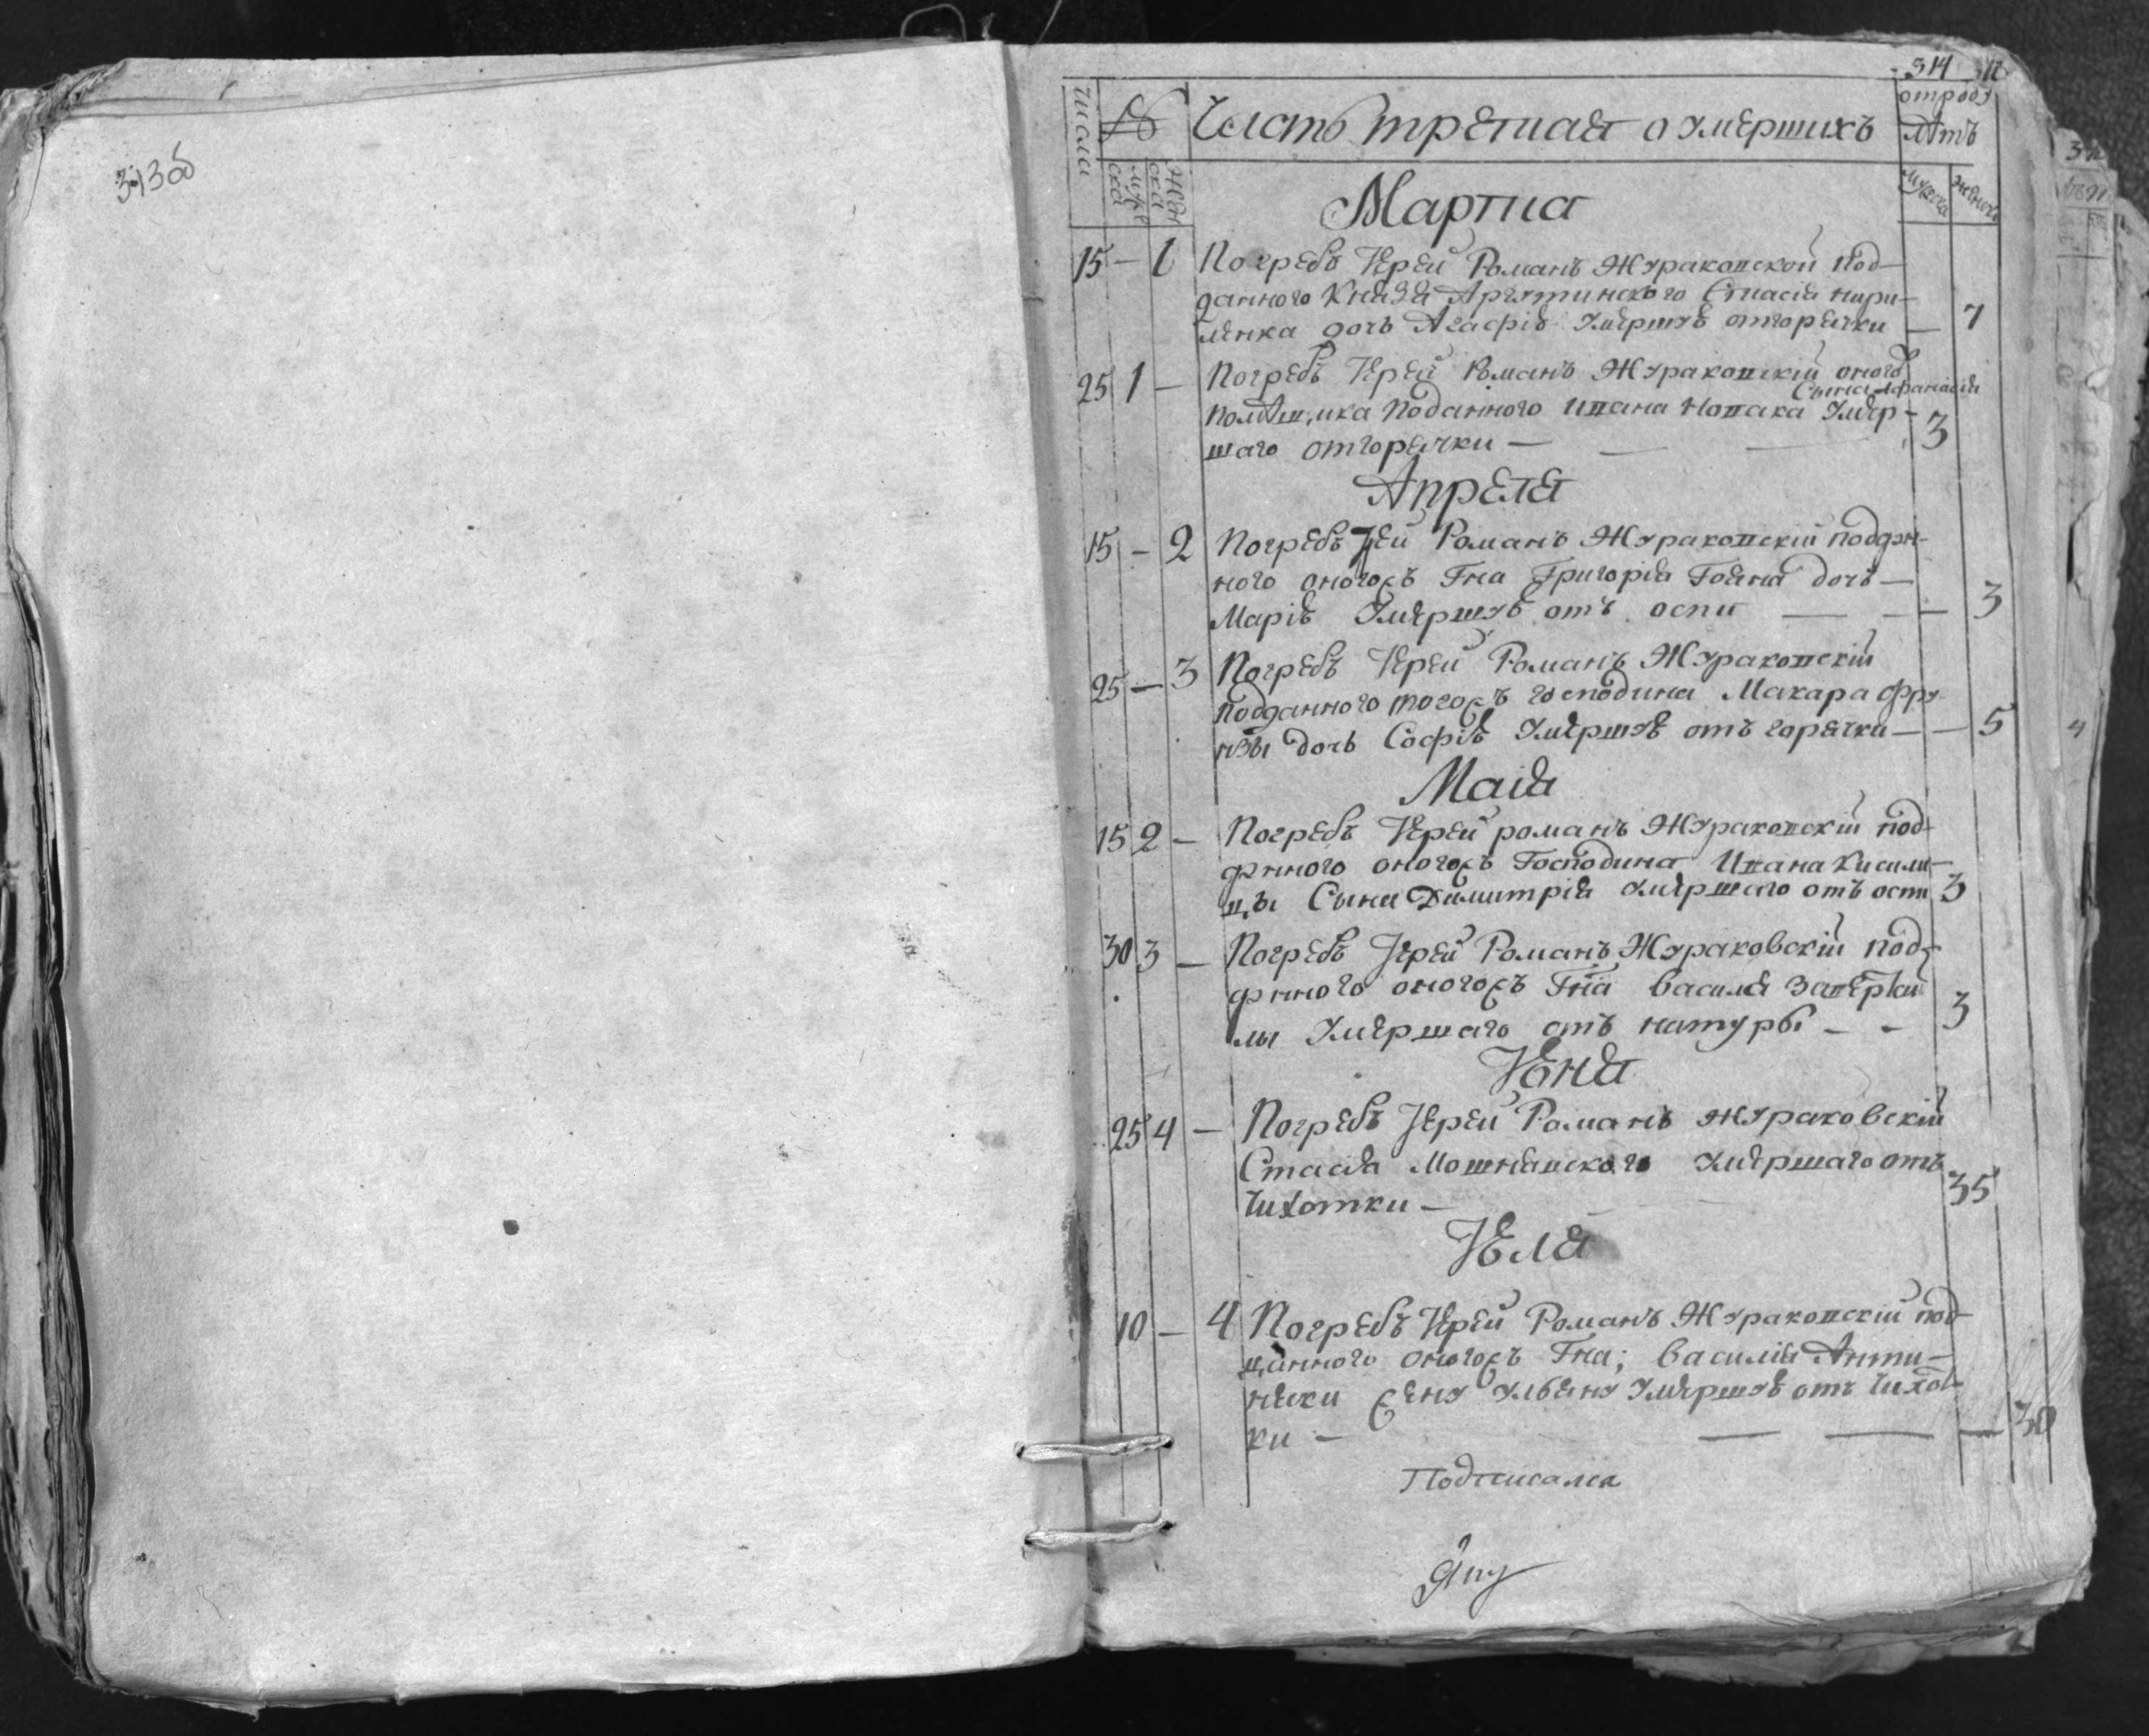 313об
314
отроду
Числа № Часть третиая о умершихъ лѣтъ
муже
ска
жен
ска
мужеска женска
Мартиа
15 — 1 Погребъ Іерей Романъ Жураковской под-
данного Князя Аргутинского Стасія
дочь Агафію умершую отгорячки — 7
25 1 — Погребъ Іерей Романъ Жураковскій оного
Сына Афанасія
помѣщика подданного Ивана Новака умер-
шаго отгорячки — 3
Апреля
15 — 2 Погребъ Іей Романъ Жураковскій поддан-
ного оногожъ Гна Григорія Гояна дочь —
Марію умершую отъ оспи — — 3
25 — 3 Погребъ Іерей Романъ Жураковскій
подданного тогожъ господина Макара Фру-
нзы дочь Софію умершую отъ горячки — — 5
Маія
15 2 — Погребъ Іерей романъ Жураковскій под-
данного оногожъ Господина Ивана Кисили-
цы Сына Димитрія умершаго отъ оспи 3
30 3 — Погребъ Іерей Романъ Жураковскій под-
данного оногожъ Гна Василя
лы умершаго отъ натуры — - 3
Іюня
25 4 — Погребъ Іерей Романъ Жураковскій
Стасія Мошнянского умершаго отъ
Чихотки — 35
Іюля
10 — 4 Погребъ Іерей Романъ Жураковскій под-
данного оногожъ Гна; Василія
жену Ульяну умершую отъ Чихот-
ки — — 30
Подписался